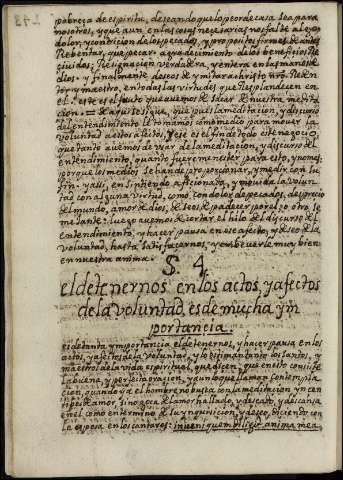 pobreza de espiritu, deseando que lo peor de casa sea para
nosotros, y que aun en las cosas necesarias nos falte algo:
dolor, y condiçion de los pecados, y propositos firmes de antes
Rebentar, que pecar: agradecimiento de los beneficios Re
ciuidos; Resignaçion verdadera, y entera en las manos de
dios. y finalmente deseos de ymitar a christo nro Reden
tor y maestro, en todas las virtudes que Resplandecen en
el. este es el fruto que auemos de sacar de nuestra medita
cion. = de aqui se sigue, que pues la meditaçion, y discurso
del entendimiento le tomamos como medio para mouer la
voluntad a estos afectos, y ese es el fin de todo este negocio,
que tanto auemos de vsar de la meditacion, y discurso del
entendimiento, quanto fuere menester para esto, y no mas:
porque los medios se han de proporcionar, y medir con su
fin. y asi, en sintiendo aficionada, y mouida la volun
tad con alguna virtud, como, con dolor de pecados, desprecio
del mundo, amor de dios, deseos de padecer por el, o otra se
mejante: luego auemos de cortar el hilo del discurso del
entendimiento, y hacer pausa en ese afecto, y deseo de la
voluntad, hasta satisfacernos, y embeuerla muy bien
en nuestra anima.
§. 4.
el detenernos en los actos, y afectos
de la voluntad, es de mucha ym
portancia.
es de tanta ymportancia el detenernos, y hacer pausa en los
actos, y afectos de la voluntad, y lo estiman tanto los santos, y
maestros de la vida espiritual, que dicen, que en esto consiste
la buena, y perfecta oracion, y aun lo que llaman contempla
cion, quando ya el hombre no busca con la meditacion yncen
tiuos de amor, sino goza del amor hallado, y deseado, y descansa
en el como en termino de su ynquisicion, y deseo, diciendo con
la esposa en los cantares: inueni quem diligit anima mea